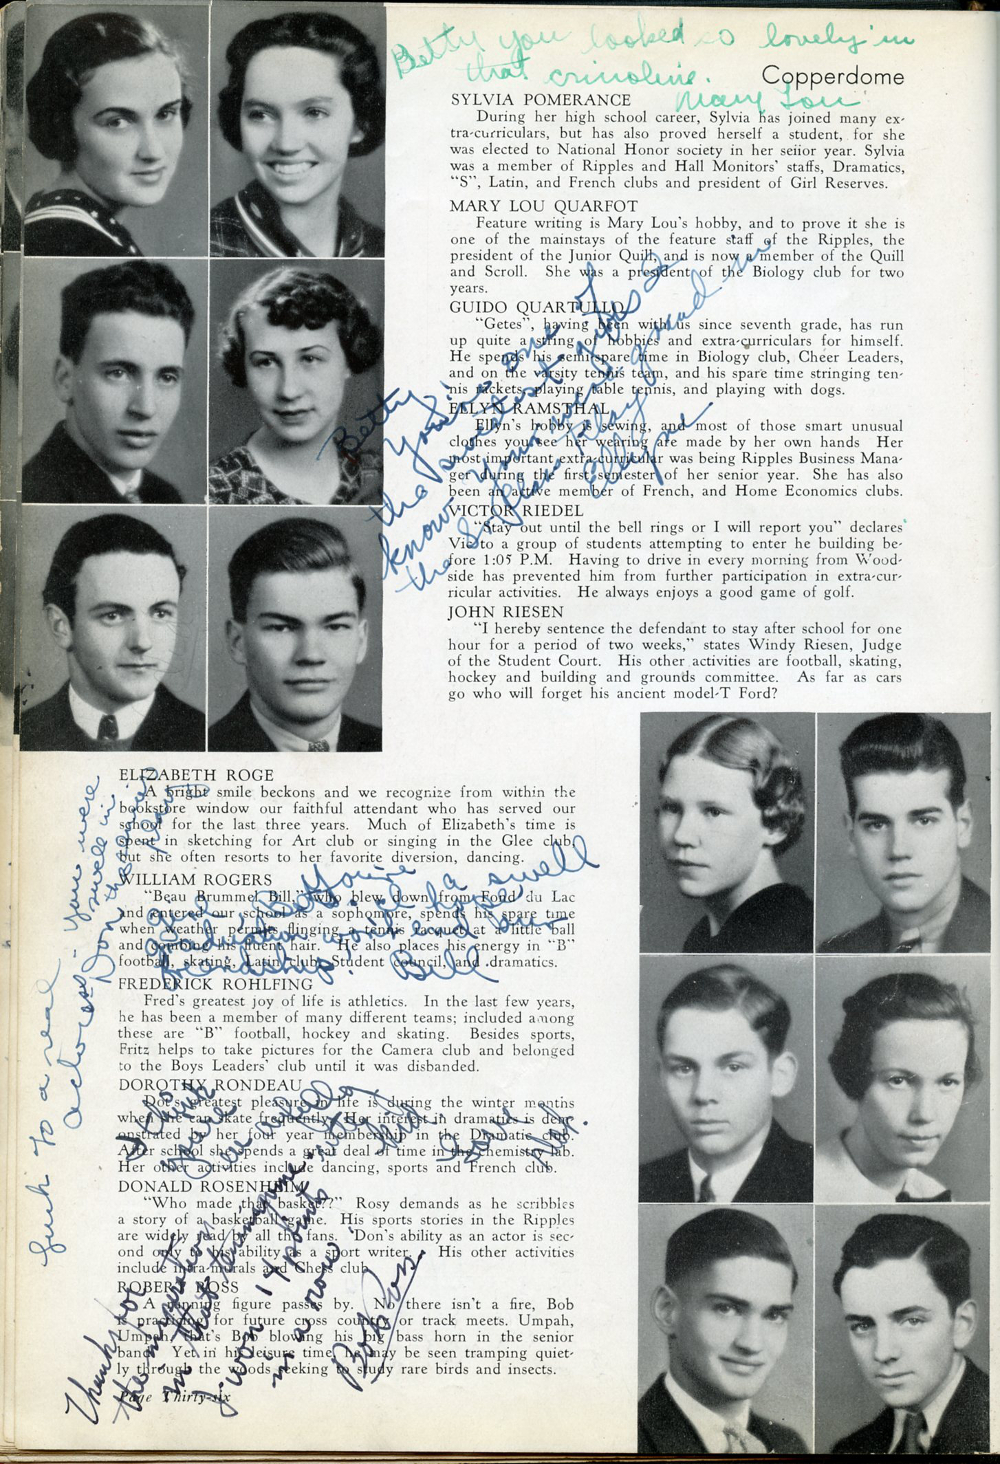 Betty you looked so lovely in
that crinoline.
Mary Lou
Copperdome
SYLVIA POMERANCE
During her high school career, Sylvia has joined many ex-
tra-curriculars, but has also proved herself a student, for she
was elected to National Honor society in her seiior year. Sylvia
was a member of Ripples and Hall Monitors' staffs, Dramatics,
"S", Latin, and French clubs and president of Girl Reserves.
MARY LOU QUARFOT
Feature writing is Mary Lou's hobby, and to prove it she is
one of the mainstays of the feature staff of the Ripples, the
president of the Junior Quill, and is now a member of the Quill
and Scroll. She was a president of the Biology club for two
years.
GUIDO QUARTULLO
"Getes", having been with us since seventh grade, has run
up quite a string of hobbies and extra-curriculars for himself.
He spends his semi-spare time in Biology club, Cheer Leaders,
and on the varsity tennis team, and his spare time stringing ten-
nis rackets, playing table tennis, and playing with dogs.
ELLYN RAMSTHAL
Ellyn's hobby is sewing, and most of those smart unusual
clothes you see her wearing are made by her own hands Her
most important extra-curricular was being Ripples Business Mana-
ger during the first semester of her senior year. She has also
been an active member of French, and Home Economics clubs.
VICTOR RIEDEL
"Stay out until the bell rings or I will report you" declares
Vic to a group of students attempting to enter he building be-
fore 1:05 P.M. Having to drive in every morning from Wood-
side has prevented him from further participation in extra-cur-
ricular activities. He always enjoys a good game of golf.
JOHN RIESEN
"I hereby sentence the defendant to stay after school for one
hour for a period of two weeks," states Windy Riesen, Judge
of the Student Court. His other activities are football, skating,
hockey and building and grounds committee. As far as cars
go who will forget his ancient model-T Ford?
Betty
You're one of
the sweetest girls I
know. You were grand in
the Play
Ellyne.
ELIZABETH ROGE
A bright smile beckons and we recognize from within the
bookstore window our faithful attendant who has served our
school for the last three years. Much of Elizabeth's time is
spent in sketching for Art club or singing in the Glee club,
but she often resorts to her favorite diversion, dancing.
WILLIAM ROGERS
"Beau Brummel Bill," who blew down from Fond du Lac
and entered our school as a sophomore, spends his spare time
when weather permits flinging a tennis racquet at a little ball
and combing his fluent hair. He also places his energy in "B"
football, skating, Latin club, Student council, and dramatics.
FREDERICK ROHLFING
Fred's greatest joy of life is athletics. In the last few years,
he has been a member of many different teams; included among
these are "B" football, hockey and skating. Besides sports,
Fritz helps to take pictures for the Camera club and belonged
to the Boys Leaders' club until it was disbanded.
DOROTHY RONDEAU
Dot's greatest pleasure in life is during the winter months
when she can skate frequently. Her interest in dramatics is dem-
onstrated by her four year membership in the Dramatic club.
After school she spends a great deal of time in the chemistry lab.
Her other activities include dancing, sports and French club.
DONALD ROSENHEIM
"Who made that basket??" Rosy demands as he scribbles
a story of a basketball game. His sports stories in the Ripples
are widely read by all the fans. Don's ability as an actor is sec-
ond only to his ability as a sport writer. His other activities
include intra-murals and Chess club.
ROBERT ROSS
A running figure passes by. No there isn't a fire, Bob
is practicing for future cross country or track meets. Umpah,
Umpah, that's Bob blowing his big bass horn in the senior
band. Yet in his leisure time, he may be seen tramping quiet-
ly through the woods seeking to study rare birds and insects.
Luck to a real
actress - you were
swell in
the senior
play
Don
You're a swell
friendship.
Bill
Thanks for
the inspiration
in that game.
I won 14 points
in a row
Bob Ross
Page Thirty-six